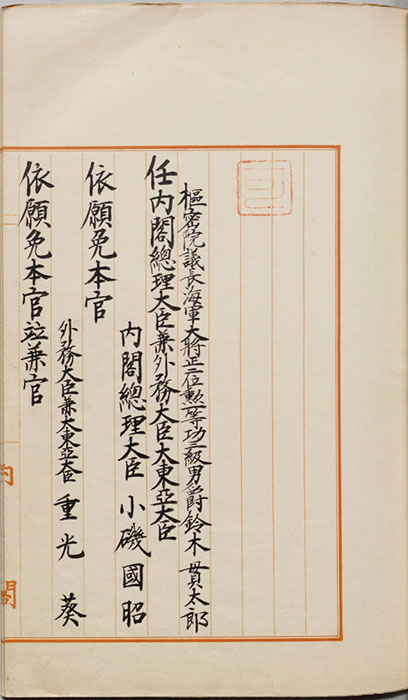 樞密院議長海軍大將正二位勲一等功三級男爵鈴木貫太郎
任内閣總理大臣兼外務大臣大東亞大臣
内閣總理大臣 小磯國昭
依願免本官
外務大臣兼大東亞大臣 重光葵
依願免本官竝兼官
内閣